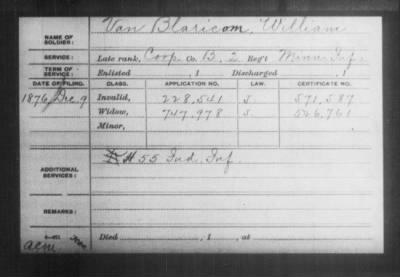 NAME OF SOLDIER: Van Blaricom, William
SERVICE: Late rank, Corp Co. B, 2 Reg't Minn Inf.
TERM OF SERVICE: Enlisted , 1 Discharged , 1
DATE OF FILING. CLASS. APPLICATION NO. LAW. CERTIFICATE NO.
1876 Dec. 9 Invalid, 228,541 571,587
Widow, 747,978 526,761
Minor,
ADDITIONAL SERVICES: H 55 Ind. Inf.
REMARKS:
Died , 1 , at